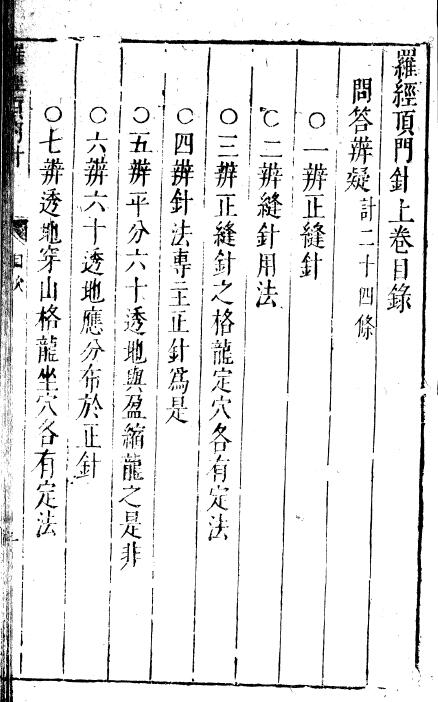 羅經頂門針上卷目錄
問答辨疑計二十四條
○一辨正縫針
○二辨縫針用法
○三辨正縫針之格龍定穴各有定法
○四辨針法專主正針爲是
○五辨平分六十透地與盈縮龍之是非
○六辨六十透地應分布於正針
○七辨透地穿山格龍坐穴各有定法
羅經頂門針
目次